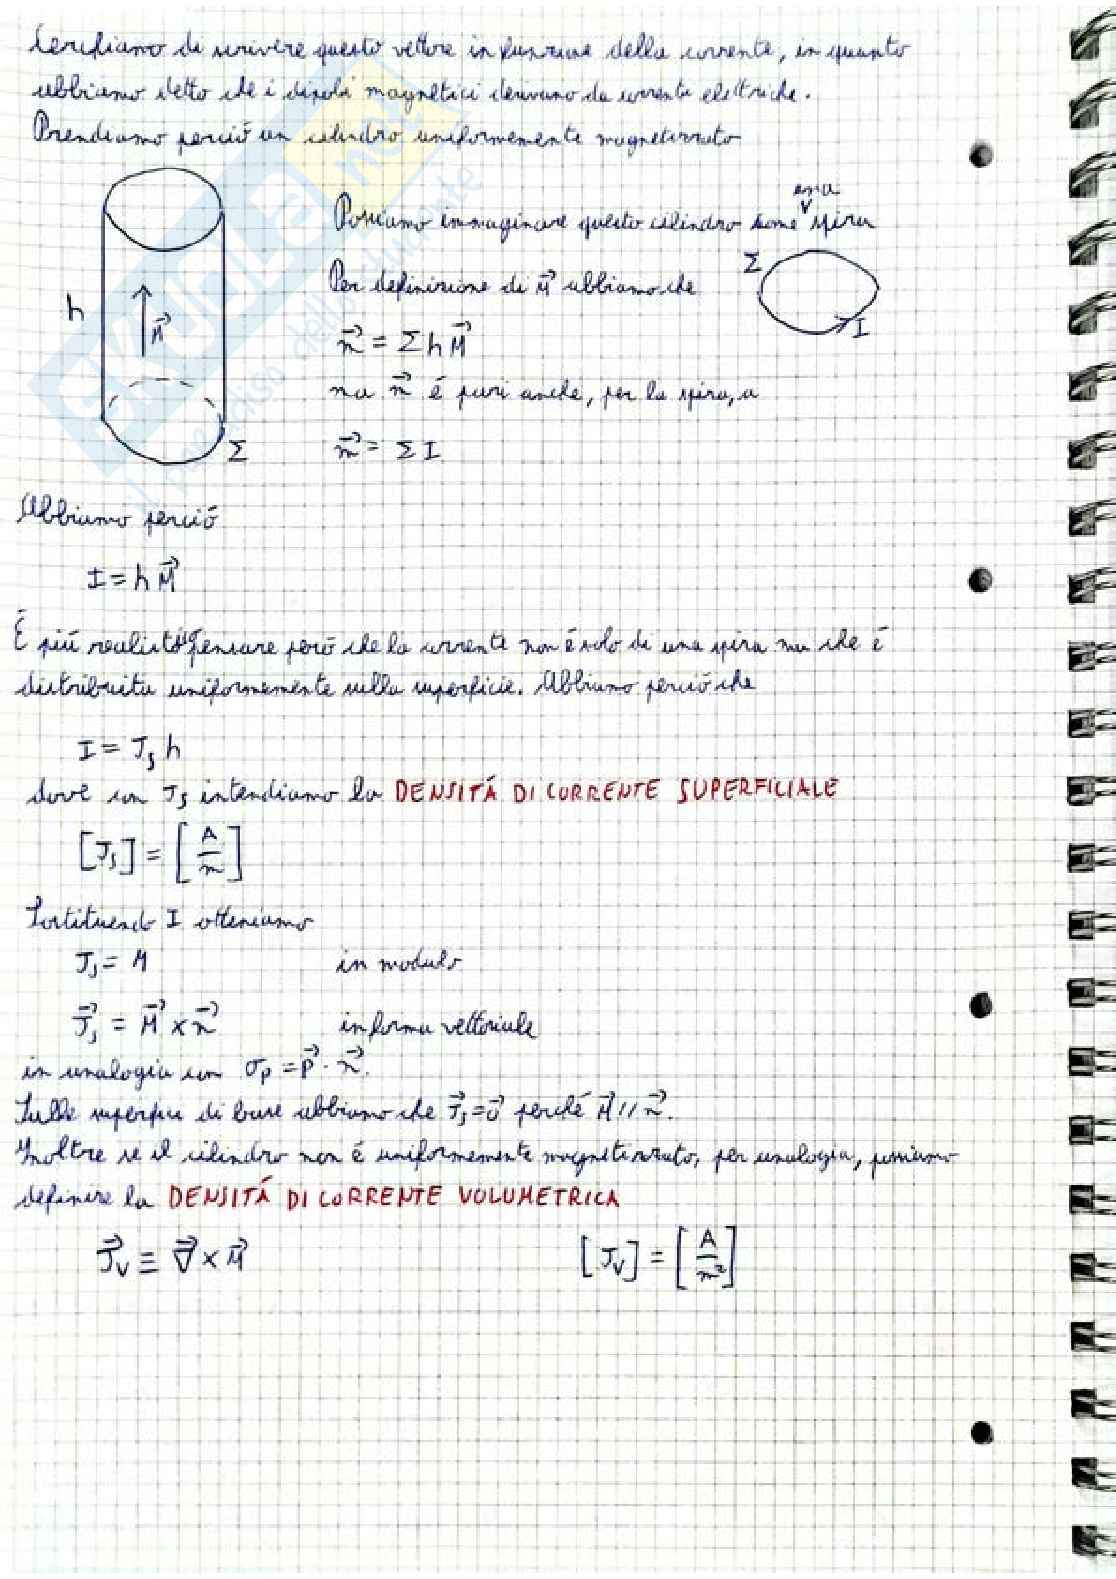 Cerchiamo di scrivere questo vettore in funzione della corrente, in quanto
abbiamo detto che i dipoli magnetici derivano da correnti elettriche.
Prendiamo perció un cilindro uniformemente magnetizzato
Possiamo immaginare questo cilindro come una spira
Per definizione di M⃗ abbiamo che
Σ
I
h
M⃗
Σ
m⃗ = Σ h M⃗
ma m⃗ é pari anche, per la spira, a
m⃗ = Σ I
Abbiamo perció
I = h M⃗
É piú realistico pensare peró che la corrente non é solo di una spira ma che é
distribuita uniformemente sulla superficie. Abbiamo perció che
I = Js h
dove con Js intendiamo la DENSITÁ DI CORRENTE SUPERFICIALE
[Js] = [A/m]
Sostituendo I otteniamo
Js = M in modulo
J⃗s = M⃗ × n⃗ in forma vettoriale
in analogia con σp = P⃗ · n⃗.
Sulle superfici di base abbiamo che J⃗s = 0⃗ perché M⃗ // n⃗.
Inoltre se il cilindro non é uniformemente magnetizzato, per analogia, possiamo
definire la DENSITÁ DI CORRENTE VOLUMETRICA
J⃗v ≡ ∇⃗ × M⃗ [Jv] = [A/m²]
SKUOLA.net
il paradiso dello studente